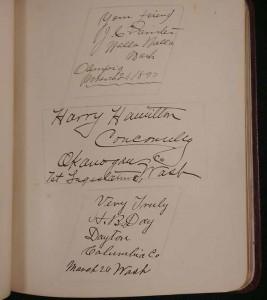 Your friend
J C
Walla Walla
Wash
Olympia
March 26 1890
Harry Hamilton
Conconully
Okanogan Co
1st Legislature Wash
Very Truly
H. B. Day
Dayton
Columbia Co
March 26 Wash